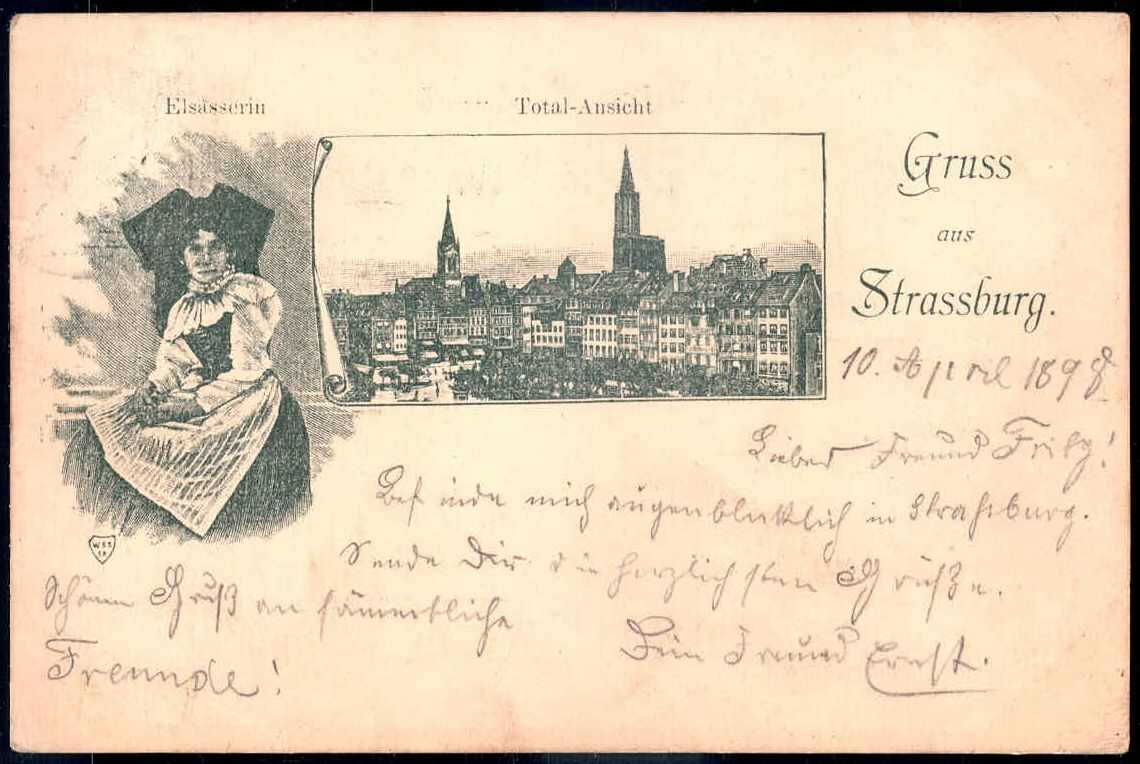 Elsässerin
Total-Ansicht
Gruss
aus
Strassburg.
10. April 1898
Lieber Freund Fritz!
Befinde mich augenblicklich in Straßburg.
Sende Dir die herzlichsten Grüße.
Schönen Gruß an sämmtliche
Freunde!
Dein Freund Ernst.